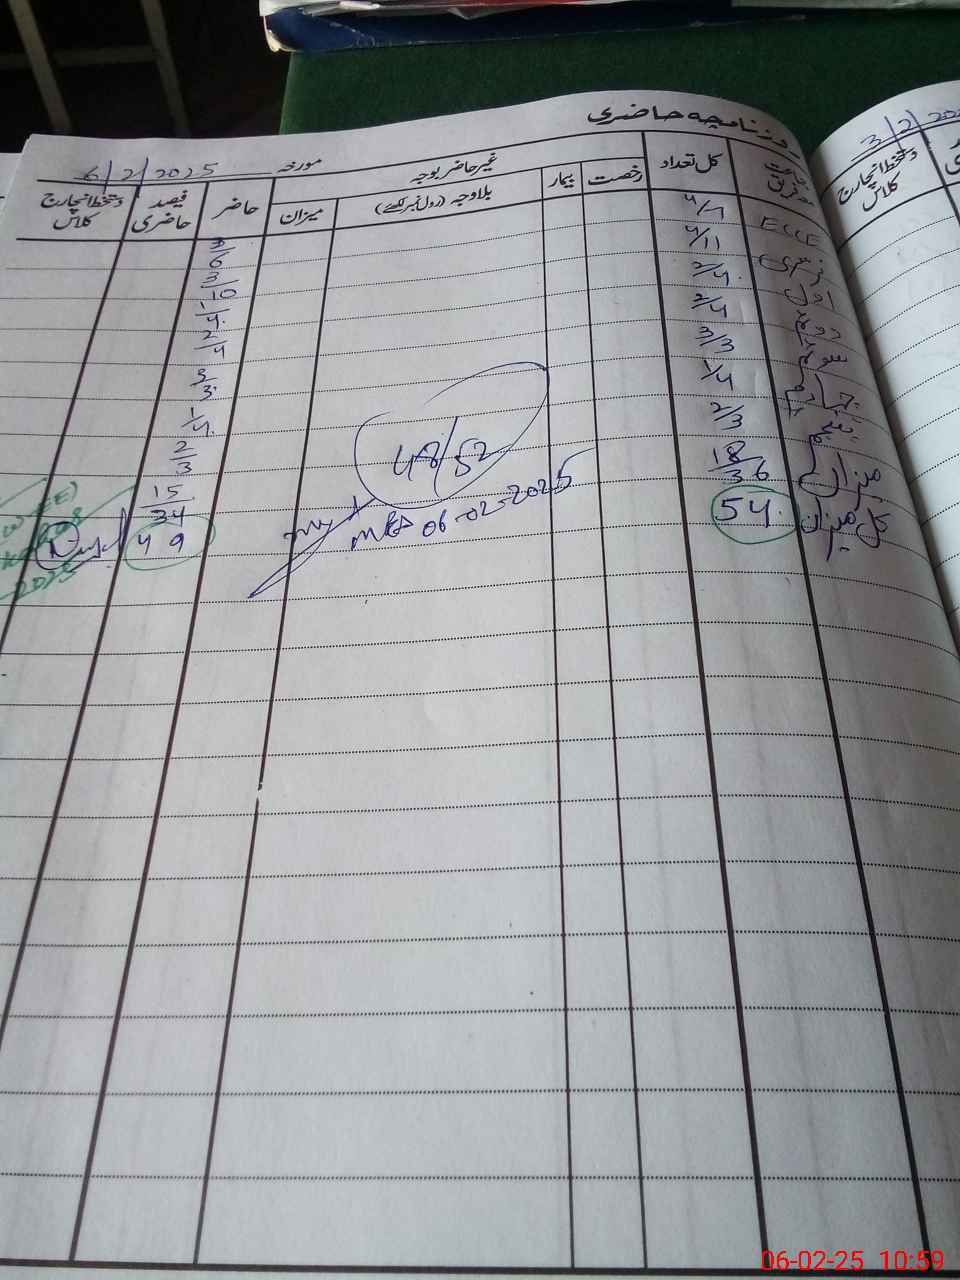 روزنامچہ حاضری
مورخہ 6/2/2025
جماعت معہ فریق کل تعداد غیر حاضر بوجہ حاضر فیصد حاضری دستخط انچارج کلاس
رخصت بیمار بلاوجہ (رول نمبر لکھے) میزان
ECCE 4/7
نرسری 4/11 6
اول 2/4 3/10
دوم 2/4 1/4
سوم 3/3 2/4
چہارم 1/4 3/3
پنجم 2/3 1/4
میزان 18/36 2/3
کل میزان 54 15/34
49
48/52
06-02-2025
2025
3/2/202
دستخط انچارج کلاس
06-02-25 10:59